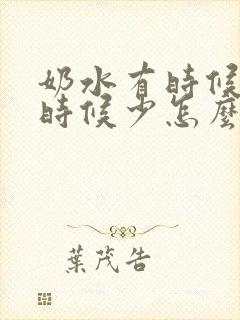 奶水有時候
時候少怎麼
葉茂告